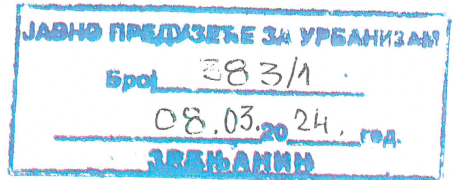 ЈАВНО ПРЕДУЗЕЋЕ ЗА УРБАНИЗАМ
Број 383/1
08.03.2024. год.
ЗРЕЊАНИН